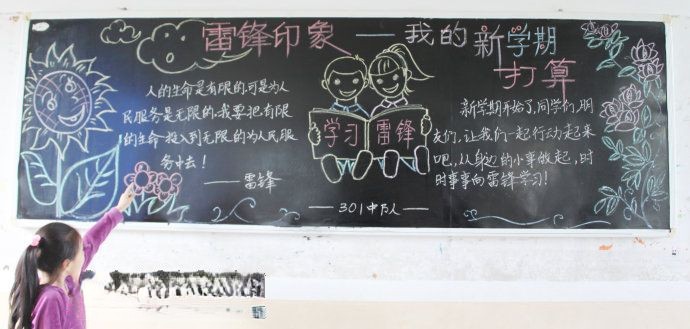 雷锋印象——我的新学期打算
人的生命是有限的,可是为人
民服务是无限的,我要把有限
的生命,投入到无限的为人民服
务中去!
——雷锋
学习雷锋
——301中队——
新学期开始了,同学们,朋
友们,让我们一起行动起来
吧,从身边的小事做起,时
时事事向雷锋学习!